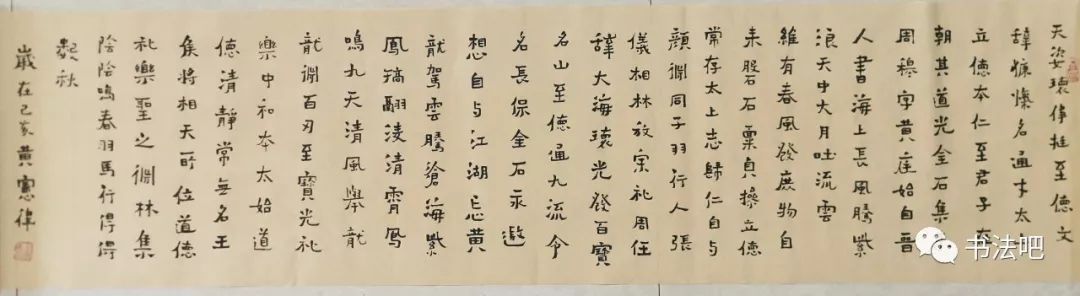 天姿瓌偉挺至德文
辭慷慨名通才太
立德本仁至君子在
朝其道光金石集
周穆字黄崖始自晉
人書海上長風騰紫
浪天中大月吐流雲
維有春風發庶物自
来股石石粟貞操立德
常存太上志歸仁自与
顔淵同子羽行人張
儀相林放宗礼周任
辭大海瓌光發百寶
名山至德通九流令
名長保金石永遨
想自与江湖忘黄
龍駕雲騰滄海紫
鳳摛翮淩清霄鳳
鳴九天清風舉龍
龍淵百刃至寶光礼
樂中和本太始道
德清靜常無名王
侯將相天所位道德
礼樂聖之淵林集
陰陰鳴春羽馬行得得
麩秋
歲在己亥黄憲偉
书法吧